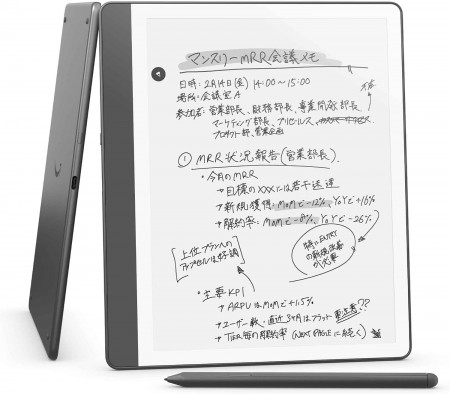 マンスリーMRR会議メモ
日時：2月14日(金) 14:00〜15:00
場所：会議室A
参加者：営業部長、財務部長、事業開発部長
マーケティング部長、プリセールス、
プロダクト部、営業企画
① MRR状況報告(営業部長)
・今月のMRR
→ 目標のXXXには若干未達
→ 新規獲得：MoMで-12%、YoYで+16%
→ 解約率：MoMで-8%、YoYで-26%
特にENTRY
の新規改善
が大事
上位プランへの
アップセルは好調
・主要KPI
→ ARPUはMoMで+1.5%
→ ユーザー数・直近3ヶ月はフラット 要点考??
→ TIER毎の解約率 (NEXT PAGEに続く)